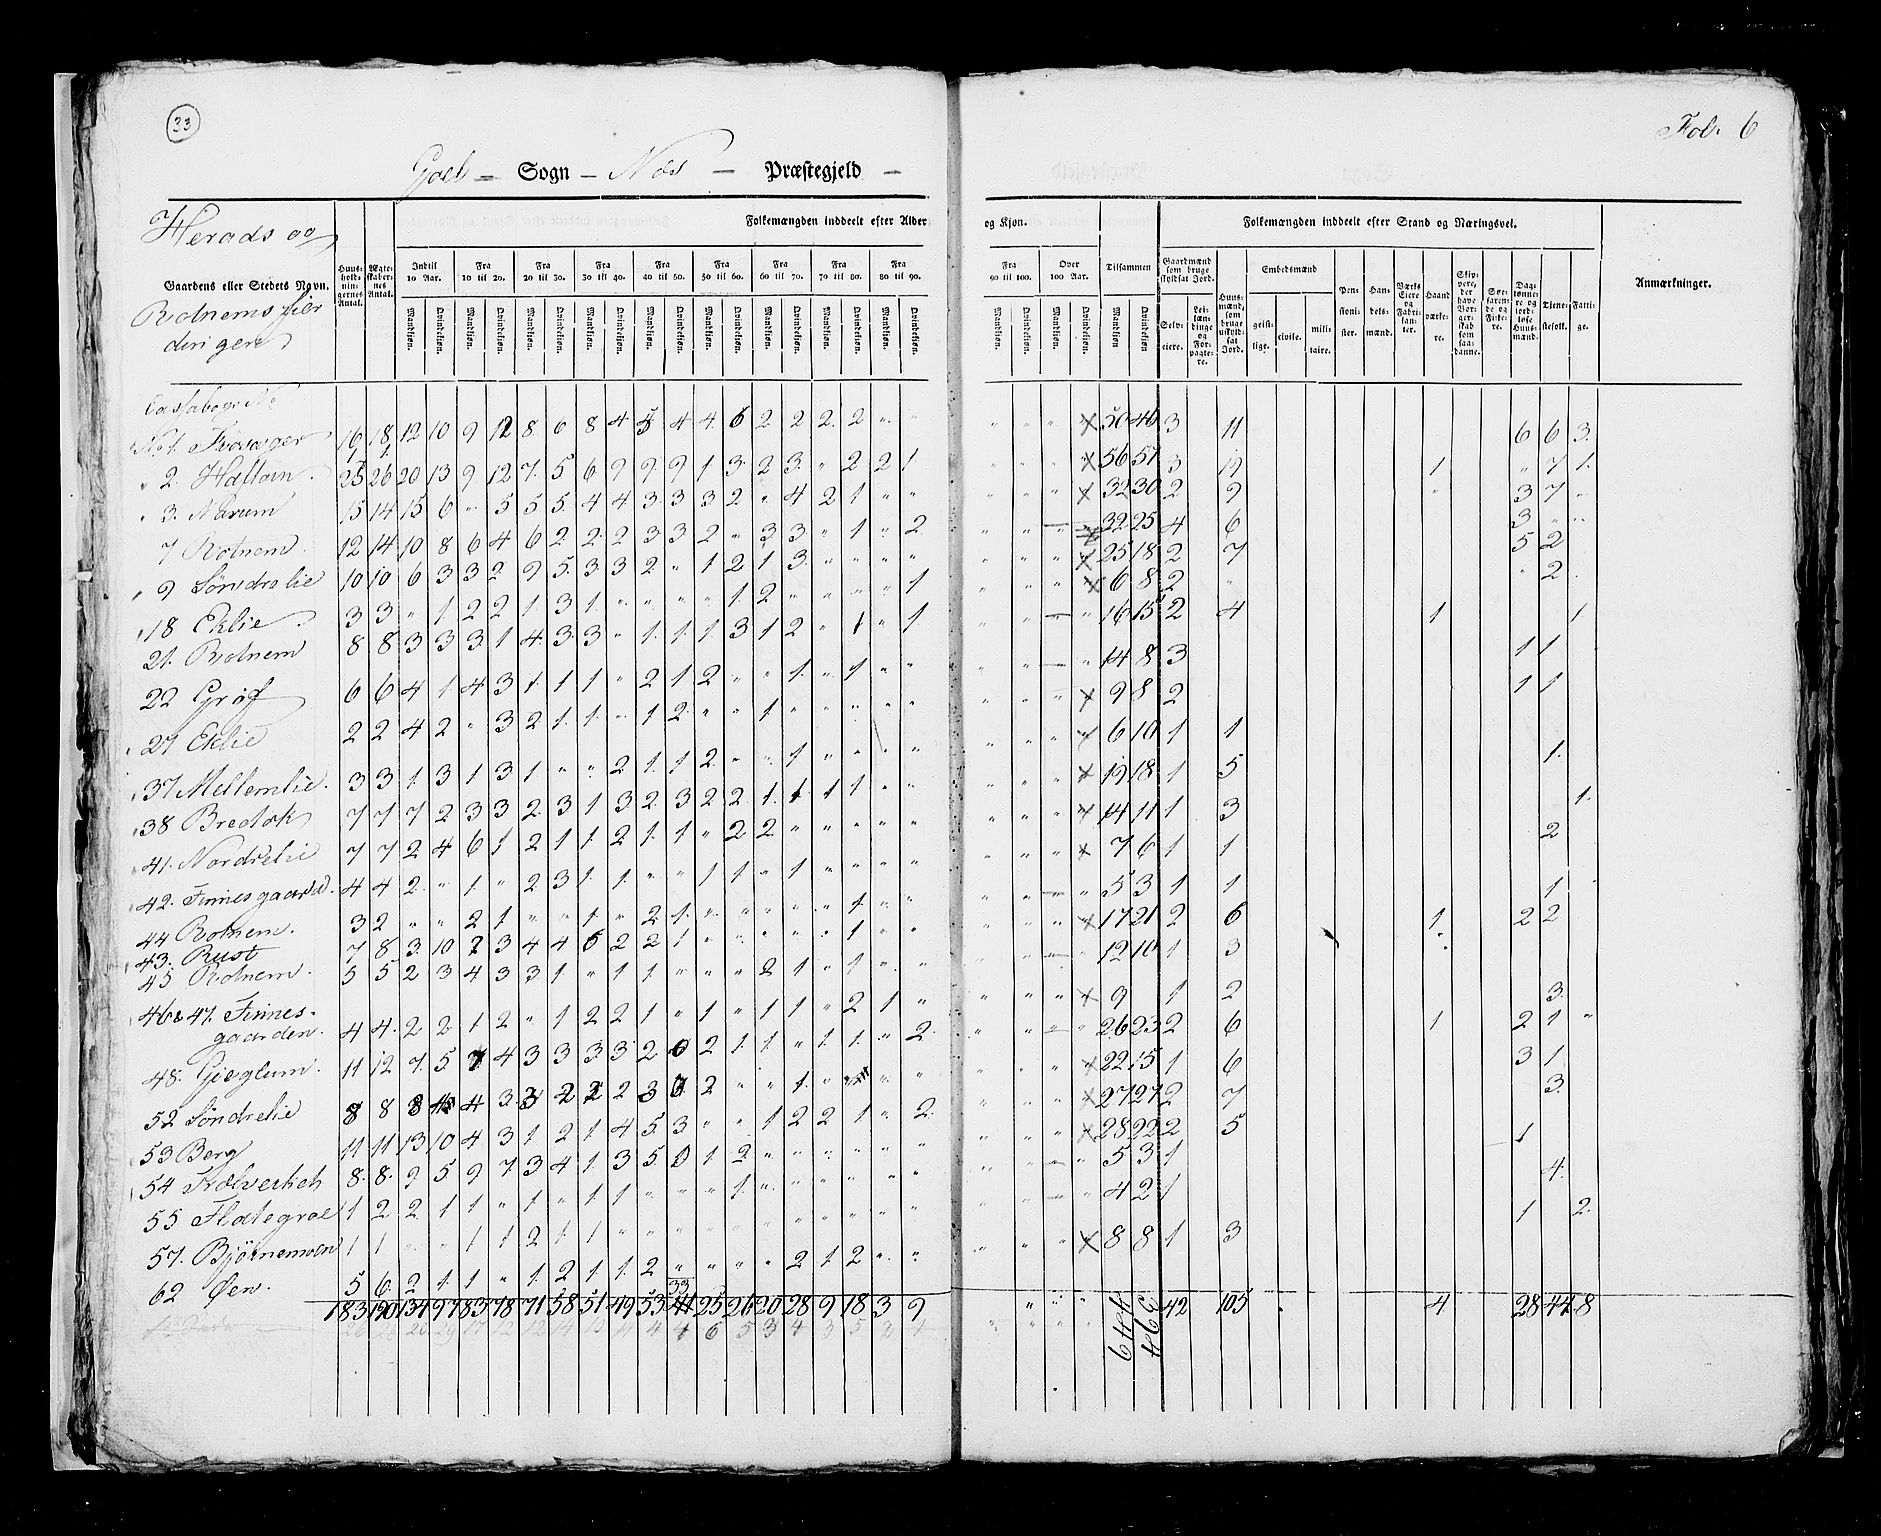 33
Fol. 6
Goel - Sogn - Næs - Præstegjeld -
Herads og
Gaardens eller Stedets Navn.
Rotnems fier
dingen
Huus-
hold-
nin-
gernes
Antal.
Ægte-
skaber-
nes
Antal.
Folkemængden inddeelt efter Alder
og Kjøn.
Indtil
10 Aar.
Fra
10 til 20.
Fra
20 til 30.
Fra
30 til 40.
Fra
40 til 50.
Fra
50 til 60.
Fra
60 til 70.
Fra
70 til 80.
Fra
80 til 90.
Fra
90 til 100.
Over
100 Aar.
Tilsammen
Mandkiøn. Qvindekiøn.
Folkemængden inddeelt efter Stand og Næringsvei.
Gaardmænd
som bruge
skyldsat Jord.
Selv-
eiere.
Lei-
læn-
dinge
og
For-
pagte-
re.
Huus-
mænd,
som
bruge
uskyld-
sat
Jord.
Embedsmænd
geist-
lige.
civile.
mili-
taire.
Pen-
sioni-
ster.
Han-
dels-
mænd.
Værks
Eiere
og
Fabri-
kan-
ter.
Haand
værke-
re.
Skip-
pere,
der
have
Bor-
ger-
skab
som
saa-
danne.
Søe-
farende
og Fiske-
re.
Dag-
lønne-
re og
jord-
løse
Huus-
mænd.
Tiene-
stefolk.
Fatti-
ge.
Anmærkninger.
No 1. Trøsager 16 18 12 10 9 12 8 6 8 4 5 4 4 6 2 2 2 2 " " " " " X 50 46 3 11 6 6 3
" 2. Hallom 25 26 20 13 9 12 7 5 6 9 9 9 1 3 2 3 " 2 2 1 " " " X 56 57 3 19 1 " 7 1
" 3. Narum 15 14 15 6 " 5 5 5 4 4 3 3 3 2 " 4 2 1 " " " " " X 32 30 2 9 " 3 7 "
7 Rotnem 12 14 10 8 6 4 6 2 2 2 3 3 2 " 3 3 " 1 " 2 32 25 4 6 3 " "
9 Søndrelie 10 10 6 3 3 2 9 5 3 3 2 " 1 2 1 3 " " " " X 25 18 2 7 5 2
18 Eklie 3 3 " 1 2 2 1 3 1 " " " " 1 2 " " " " 1 X 6 8 2 " " 2
21. Rotnem 8 8 3 3 3 1 4 3 3 " 1 1 1 3 1 2 " 1 " 1 16 15 2 4 1 1
22 Grøf 6 6 4 1 4 3 1 1 1 " 2 1 2 " " 1 " 1 " " 14 8 3 1 1
27 Eklie 2 2 4 2 " 3 2 1 1 " 1 2 " " 1 " " " " " X 9 8 2 1 1
37 Mellemlie 3 3 1 3 1 3 1 " " 2 1 1 2 " " 1 " " " " 6 10 1 1
38 Bredok 7 7 7 2 3 3 2 3 1 3 2 3 2 2 1 1 1 1 " " X 19 18 1 5 1
41. Nordrelie 7 7 2 4 6 1 2 1 1 2 1 1 " 2 2 " " " " " 14 11 1 3 1
42. Finnesgaard 4 4 2 " 1 " 2 3 1 1 " " 1 1 " 1 " " " " X 7 6 1 1 2
44 Rotnem. 3 2 " " 2 1 " " 1 " 2 1 " " " " " 1 " " 5 3 1 1 1
43. Rust 7 8 3 10 2 3 4 4 6 2 2 1 " " " " " 1 " " X 17 21 2 6 1 2 2
45 Rotnem 5 5 2 3 4 3 3 1 " 1 1 " " " 2 1 " 1 " " 12 10 1 3
46 & 47. Finnes-
gaarden. 4 4 2 2 1 2 " 1 2 2 1 " 1 " 1 1 " 2 1 " X 9 1 2 3
48. Gjøglum. 11 12 7 5 7 4 3 3 3 3 2 6 2 1 1 " 1 1 " 2 26 23 2 6 1 2 1 "
52 Søndrelie 8 8 3 3 2 " " 1 " X 22 15 1 6 3 1
53 Berg 11 11 13 10 4 3 1 2 1 4 5 3 " " 1 2 2 1 " 2 X 27 27 2 7 3
54 8 8 9 5 9 7 3 4 1 3 5 0 1 2 " " " " " " X 28 22 2 5 1
55 Flategrae 1 2 2 1 1 " 1 " 1 1 " " " 1 " " " " " " 5 3 1 4
57. Bjørnemoen 1 1 " " 1 1 2 1 1 " " " " " " " " " " " 4 2 1 1 2
62 Øen. 5 6 2 1 1 " 1 2 1 1 2 " " " " 2 1 2 " " X 8 8 1 3
33
183 190 134 97 83 78 71 58 51 49 53 41 25 26 20 28 9 18 3 9 " " " " 449 394 42 105 4 28 44 8